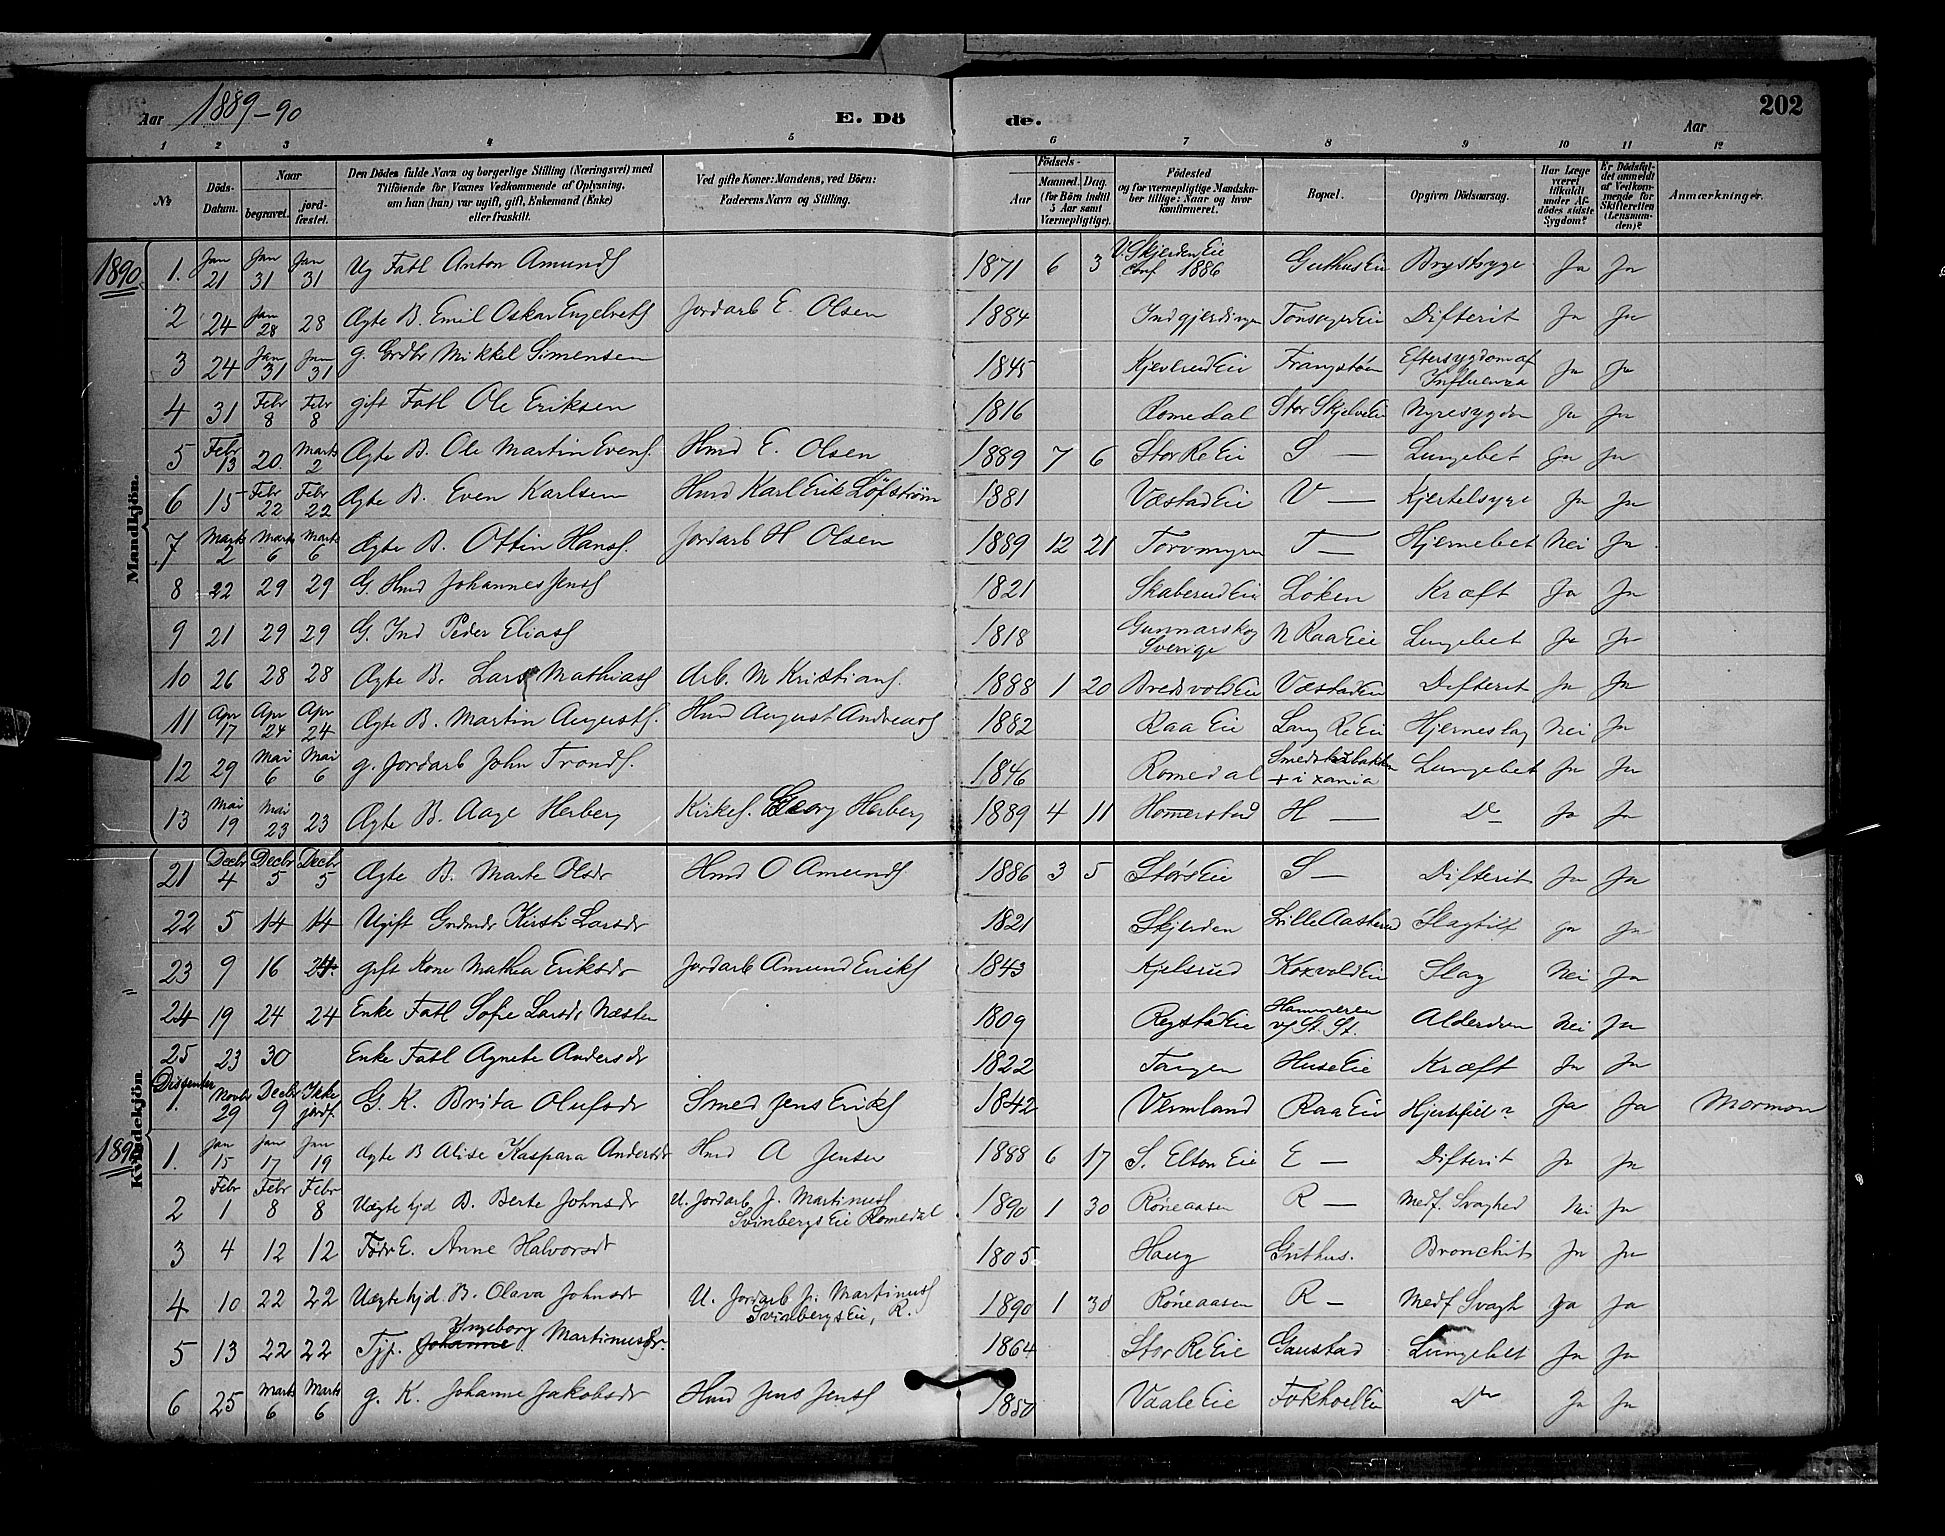 Aar 1889-90 E. Dö de. Aar 202
1 2 3 4 5 6 7 8 9 10 11 12
№ Döds-Datum. Naar begravet. jord-fæstet. Den Dödes fulde Navn og borgerlige Stilling (Næringsvei) med Tilföiende for Voxnes Vedkommende af Oplysning, om han (hun) var ugift, gift, Enkemand (Enke) eller fraskilt. Ved gifte Koner: Mandens, ved Börn: Faderens Navn og Stilling. Födsels- Aar Maaned. Dag. (for Börn indtil 5 Aar samt Værnepligtige). Födested og for værnepligtige Mandskaber tillige: Naar og hvor konfirmeret. Bopæl. Opgiven Dödsaarsag. Har Læge været tilkaldt under Afdödes sidste Sygdom? Er Dödsfaldet anmeldt af Vedkommende for Skifteretten (Lensmanden)? Anmærkninger.
Mandkjön.
1890 1. Jan 21 Jan 31 Jan 31 Ug Fatl Anton Amunds 1871 6 3 V. Skjerden Eie Conf 1886 Guthus Ei Brystsyge Ja Ja
2 24 Jan 28 28 Ægte B. Emil Oskar Engelrets Jordarb E. Olsen 1884 Indgjerdingen Tonsager Eie Difterit Ja Ja
3 24 Jan 31 Jan 31 g. Grdbr Mikkel Simensen 1845 Kjeverud Eie Frangstøen Eftersygdom af Influenza Ja Ja
4 31 Febr 8 Febr 8 gift Fatl Ole Eriksen 1816 Romedal Stor Skjelve Ei Nyresygdom Ja Ja
5 Febr 13 20. Marts 2 Ægte B. Ole Martin Evens. Hmd E. Olsen 1889 7 6 Stor Re Eie S — Lungebet Ja Ja
6 15 Febr 22 Febr 22 Ægte B. Even Karlsen Hmd Karl Erik Löfström 1881 Væstad Eie V — Kjertelsyge Ja Ja
7 Marts 2 Marts 6 Marts 6 Ægte B. Ottin Hans. Jordarb H Olsen 1889 12 21 Torvmyren T — Hjernebet Nei Ja
8 22 29 29 G. Hmd Johannes Jens 1821 Skaberud Eie Løken Kræft Ja Ja
9 21 29 29 G. Ind Peder Elias 1818 Gunnarskog Sverige N Raa Eie Lungebet Ja Ja
10 26 28 28 Ægte B. Lars Mathias Arb. M Kristians. 1888 1 20 Bredsvold Eie Væstad Ei Difterit Ja Ja
11 Apr 17 Apr 24 Apr 24 Ægte B. Martin Augusts. Hmd August Andreas 1882 Raa Eie Lang Re Ei Hjerneslag Nei Ja
12 29 Mai 6 Mai 6 g. Jordarb John Tronds. 1846 Romedal + i xania Lungebet Ja Ja
13 Mai 19 Mai 23 23 Ægte B. Aage Herberg Kirkes. Georg Herberg 1889 4 11 Homerstad H — Do Ja Ja
Kvindekjön.
21 Decbr 4 Decbr 5 Decbr 5 Ægte B. Marte Olsdr Hmd O Amunds 1886 3 5 Störs Eie S — Difterit Ja Ja
22 5 14 14 Ugift Grdmdr Kirsti Larsdr 1821 Skjerden Lille Aasterud Slagtilf ja Ja
23 9 16 24 gift Kone Mathea Eriksdr Jordarb Amund Eriks 1843 Kjelsrud Koxvold Eie Slag Nei Ja
24 19 24 24 Enke Fatl Sofie Larsdr Næsten 1809 Rygstad Eie Hammeren v/ St. St. Alderdom Nei Ja
25 23 30 Enke Fatl Agnete Andersdr 1822 Tangen Huse Eie Kræft Ja Ja
Dissenter 1. Novbr 29 Decbr 9 Ikke jordf. G. K. Brita Olufsdr Smed Jens Eriks 1842 Vermland Raa Eie Hjertfeil? Ja Ja Mormon
1890 1. Jan 15 Jan 17 Jan 19 Ægte B Alise Kaspara Andersdr Hmd A Jensen 1888 6 17 S. Elton Eie E — Difterit Ja Ja
2 Febr 1 Febr 8 Febr 8 Uægte hjd B. Berte Johnsdr U. Jordarb J. Martinus Svinbergs Eie Romedal 1890 1 30 Røneaasen R — Medf. Svaghed Nei Ja
3 4 12 12 Födr E. Anne Halvorsdr 1805 Haug Guthus. Bronchit Ja Ja
4 10 22 22 Uægte hjd. B. Olava Johnsdr U. Jordarb J. Martinus Svinbergs Eie, R. 1890 1 30 Røneaasen R — Medf Svagh Ja Ja
5 13 22 22 Tjp. Johanne Ingeborg Martinusdr. 1864 Stor Re Eie Gaustad Lungebet Ja Ja
6 25 Marts 6 Marts 6 g. K. Johanne Jakobsdr Hmd Jens Jens 1850 Vaale Eie Fokhoel Ei Do Ja Ja